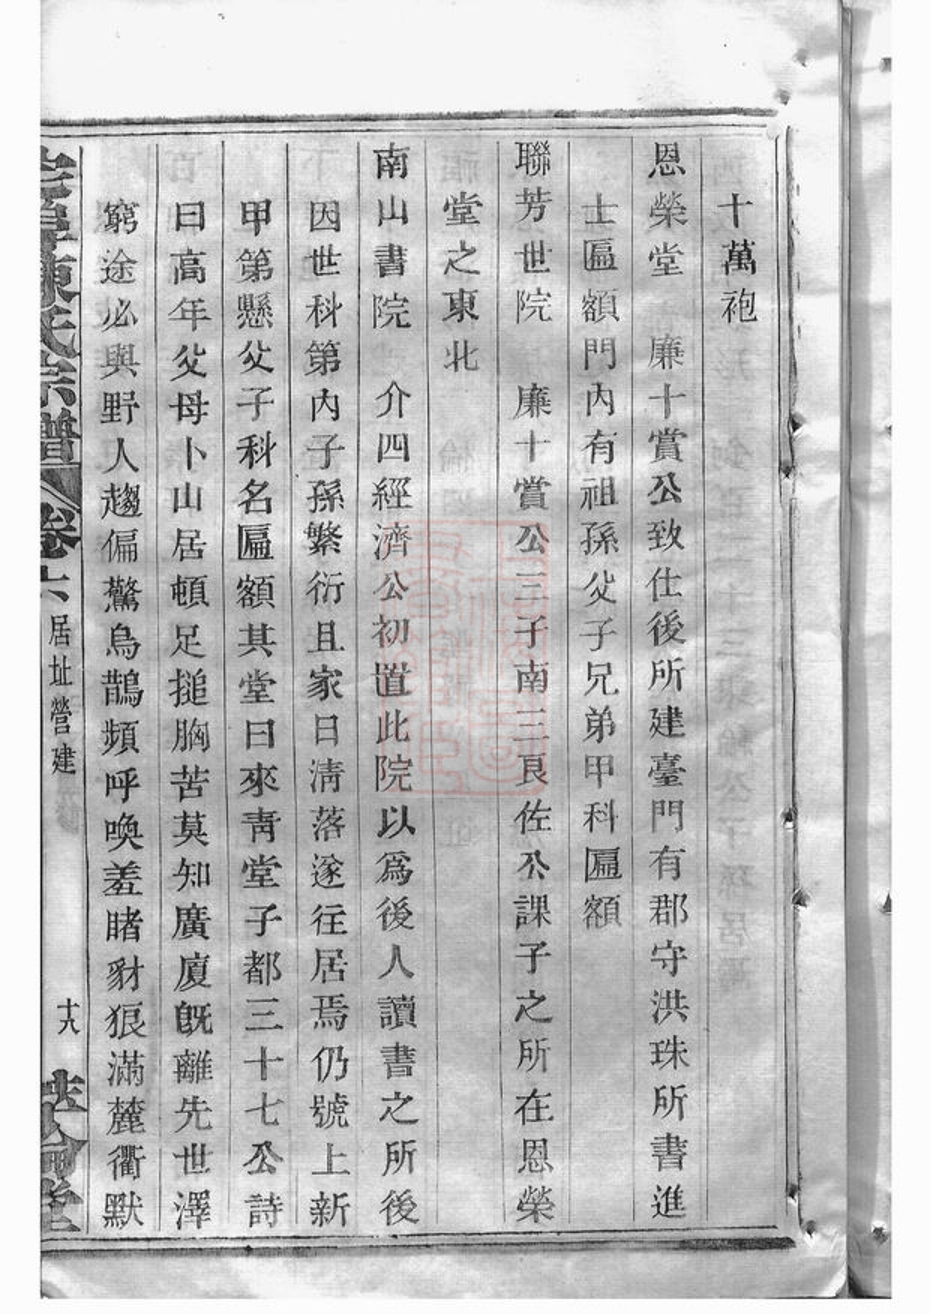 十萬袍
恩榮堂　廉十賞公致仕後所建臺門有郡守洪珠所書進
士匾額門內有祖孫父子兄弟甲科匾額
聯芳世院　廉十賞公三子南三良佐公課子之所在恩榮
堂之東北
南山書院　介四經濟公初置此院以爲後人讀書之所後
因世科第內子孫繁衍且家日淸落遂往居焉仍號上新
甲第懸父子科名匾額其堂曰來靑堂子都三十七公詩
曰高年父母卜山居頓足搥胸苦莫知廣廈旣離先世澤
窮途必與野人趨偏驚烏鵲頻呼喚羞睹豺狼滿麓衢默
陳氏宗譜 卷六 居址營建 十八 堂